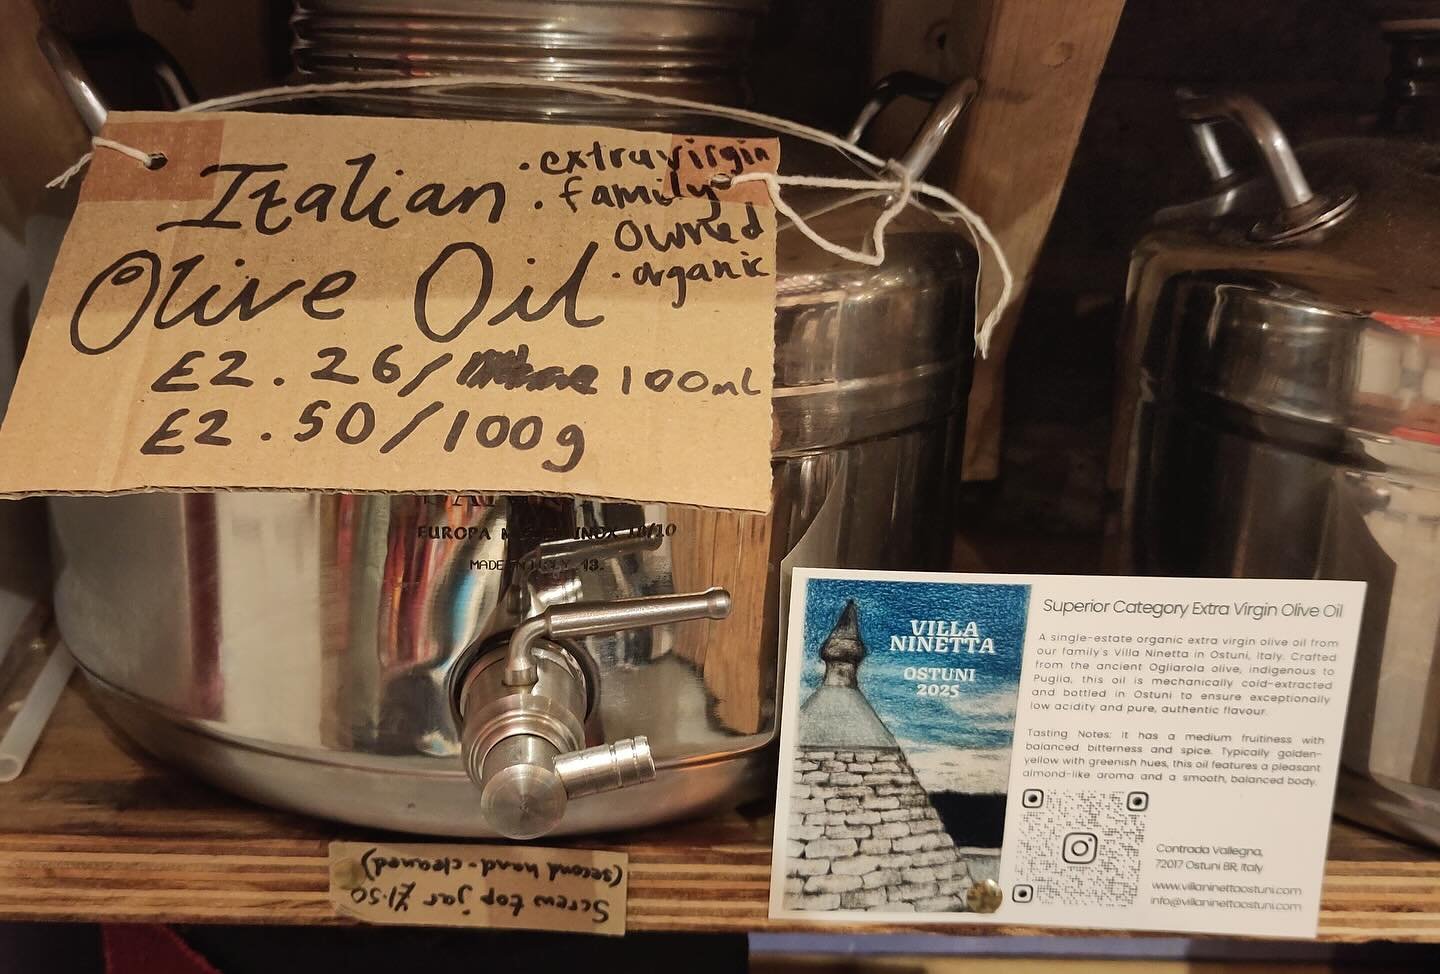 Italian
Olive Oil
. extra virgin
. family
owned
. organic
£2.26/ 100mL
£2.50/100g
EUROPA INOX 18/10
MADE IN
Screw top jar £1.50
(second hand - cleaned)
VILLA
NINETTA
OSTUNI
2025
Superior Category Extra Virgin Olive Oil
A single-estate organic extra virgin olive oil from
our family's Villa Ninetta in Ostuni, Italy. Crafted
from the ancient Ogliarola olive, indigenous to
Puglia, this oil is mechanically cold-extracted
and bottled in Ostuni to ensure exceptionally
low acidity and pure, authentic flavour.
Tasting Notes: It has a medium fruitiness with
balanced bitterness and spice. Typically golden-
yellow with greenish hues, this oil features a pleasant
almond-like aroma and a smooth, balanced body.
Contrada Vallegna,
72017 Ostuni BR, Italy
www.villaninettaostuni.com
info@villaninettaostuni.com